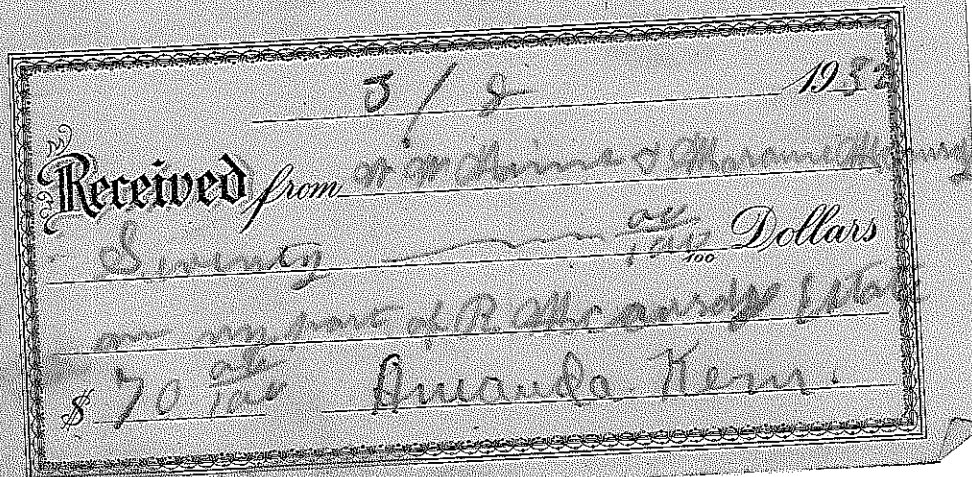 3/8 1932
Received from W W &
Seventy 00/100 Dollars
on my part of R Estate
$ 70 00/100 Amanda Kern.